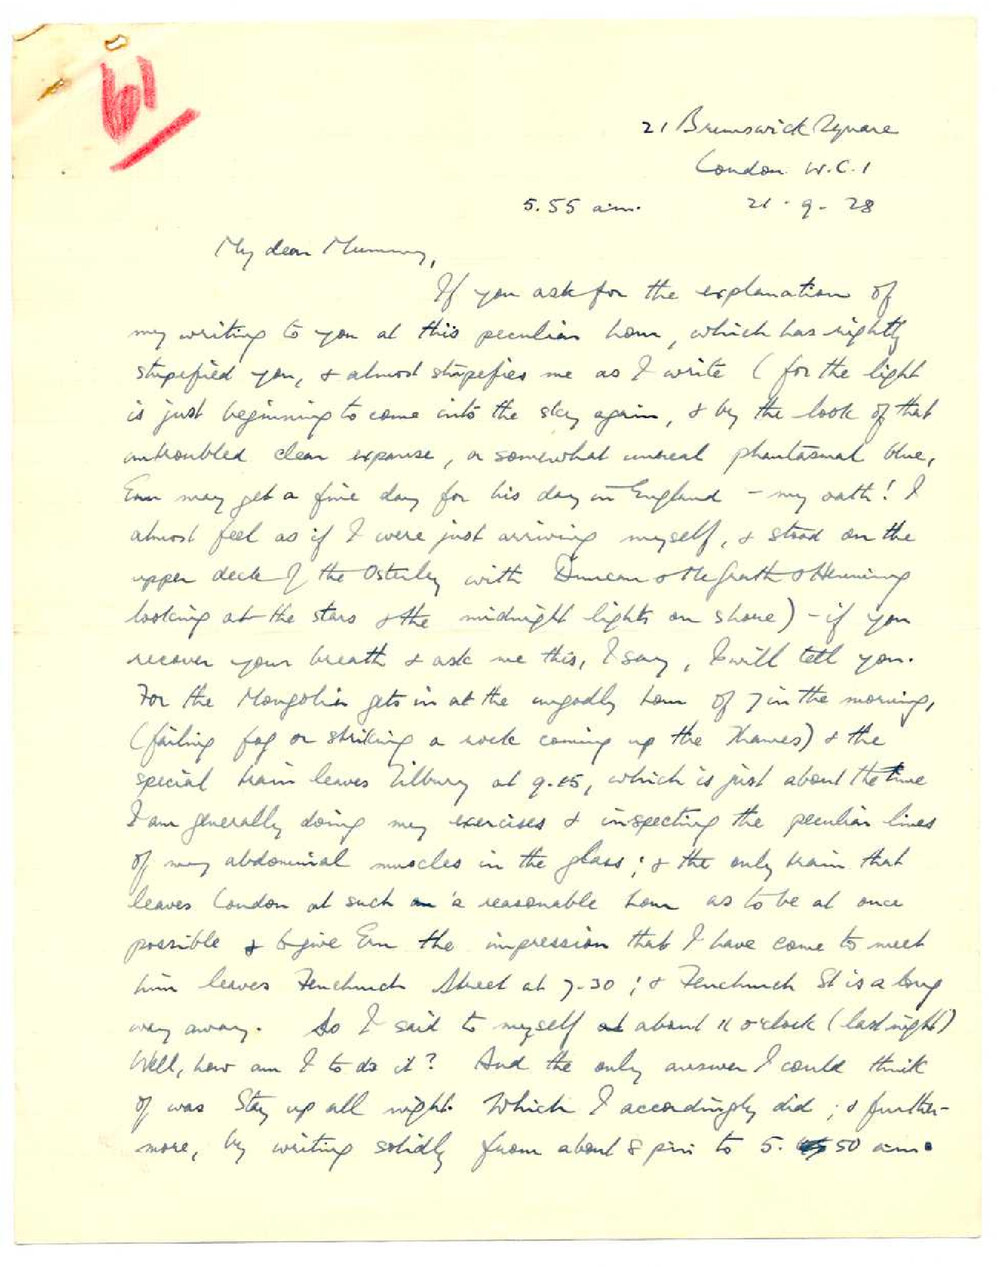 61
21 Brunswick Square
London W.C.1
5.55 a.m. 21-9-28
My dear Mummy,
If you ask for the explanation of
my writing to you at this peculiar hour, which has rightly
stupefied you, & almost stupefies me as I write (for the light
is just beginning to come into the sky again, & by the look of that
untroubled clear expanse, a somewhat unreal phantasmal blue,
Ern may get a fine day for his day in England - my oath! I
almost feel as if I were just arriving myself, & stood on the
upper deck of the Osterley with Duncan & McGrath & Henning
looking at the stars & the midnight lights on shore) - if you
recover your breath & ask me this, I say, I will tell you.
For the Mongolia gets in at the ungodly hour of 7 in the morning,
(failing fog or striking a rock coming up the Thames) & the
special train leaves Tilbury at 9.15, which is just about the time
I am generally doing my exercises & inspecting the peculiar lines
of my abdominal muscles in the glass; & the only train that
leaves London at such a reasonable hour as to be at once
possible & to give Ern the impression that I have come to meet
him leaves Fenchurch Street at 7-30; & Fenchurch St is a long
way away. So I said to myself at about 11 o'clock (last night)
Well, how am I to do it? And the only answer I could think
of was Stay up all night. Which I accordingly did; & further-
more, by writing solidly from about 8 pm to 5. 50 am.